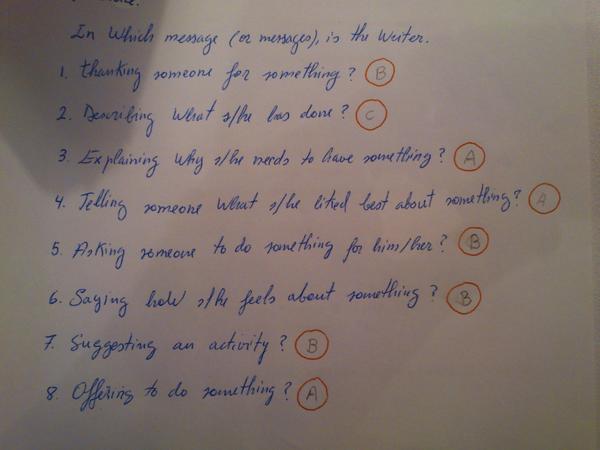 In Which message (or messages), is the Writer.
1. thanking someone for something? B
2. Describing What s/he has done? C
3. Explaining why s/he needs to have something? A
4. Telling someone What s/he liked best about something? A
5. Asking someone to do something for him/her? B
6. Saying how s/he feels about something? B
7. Suggesting an activity? B
8. Offering to do something? A